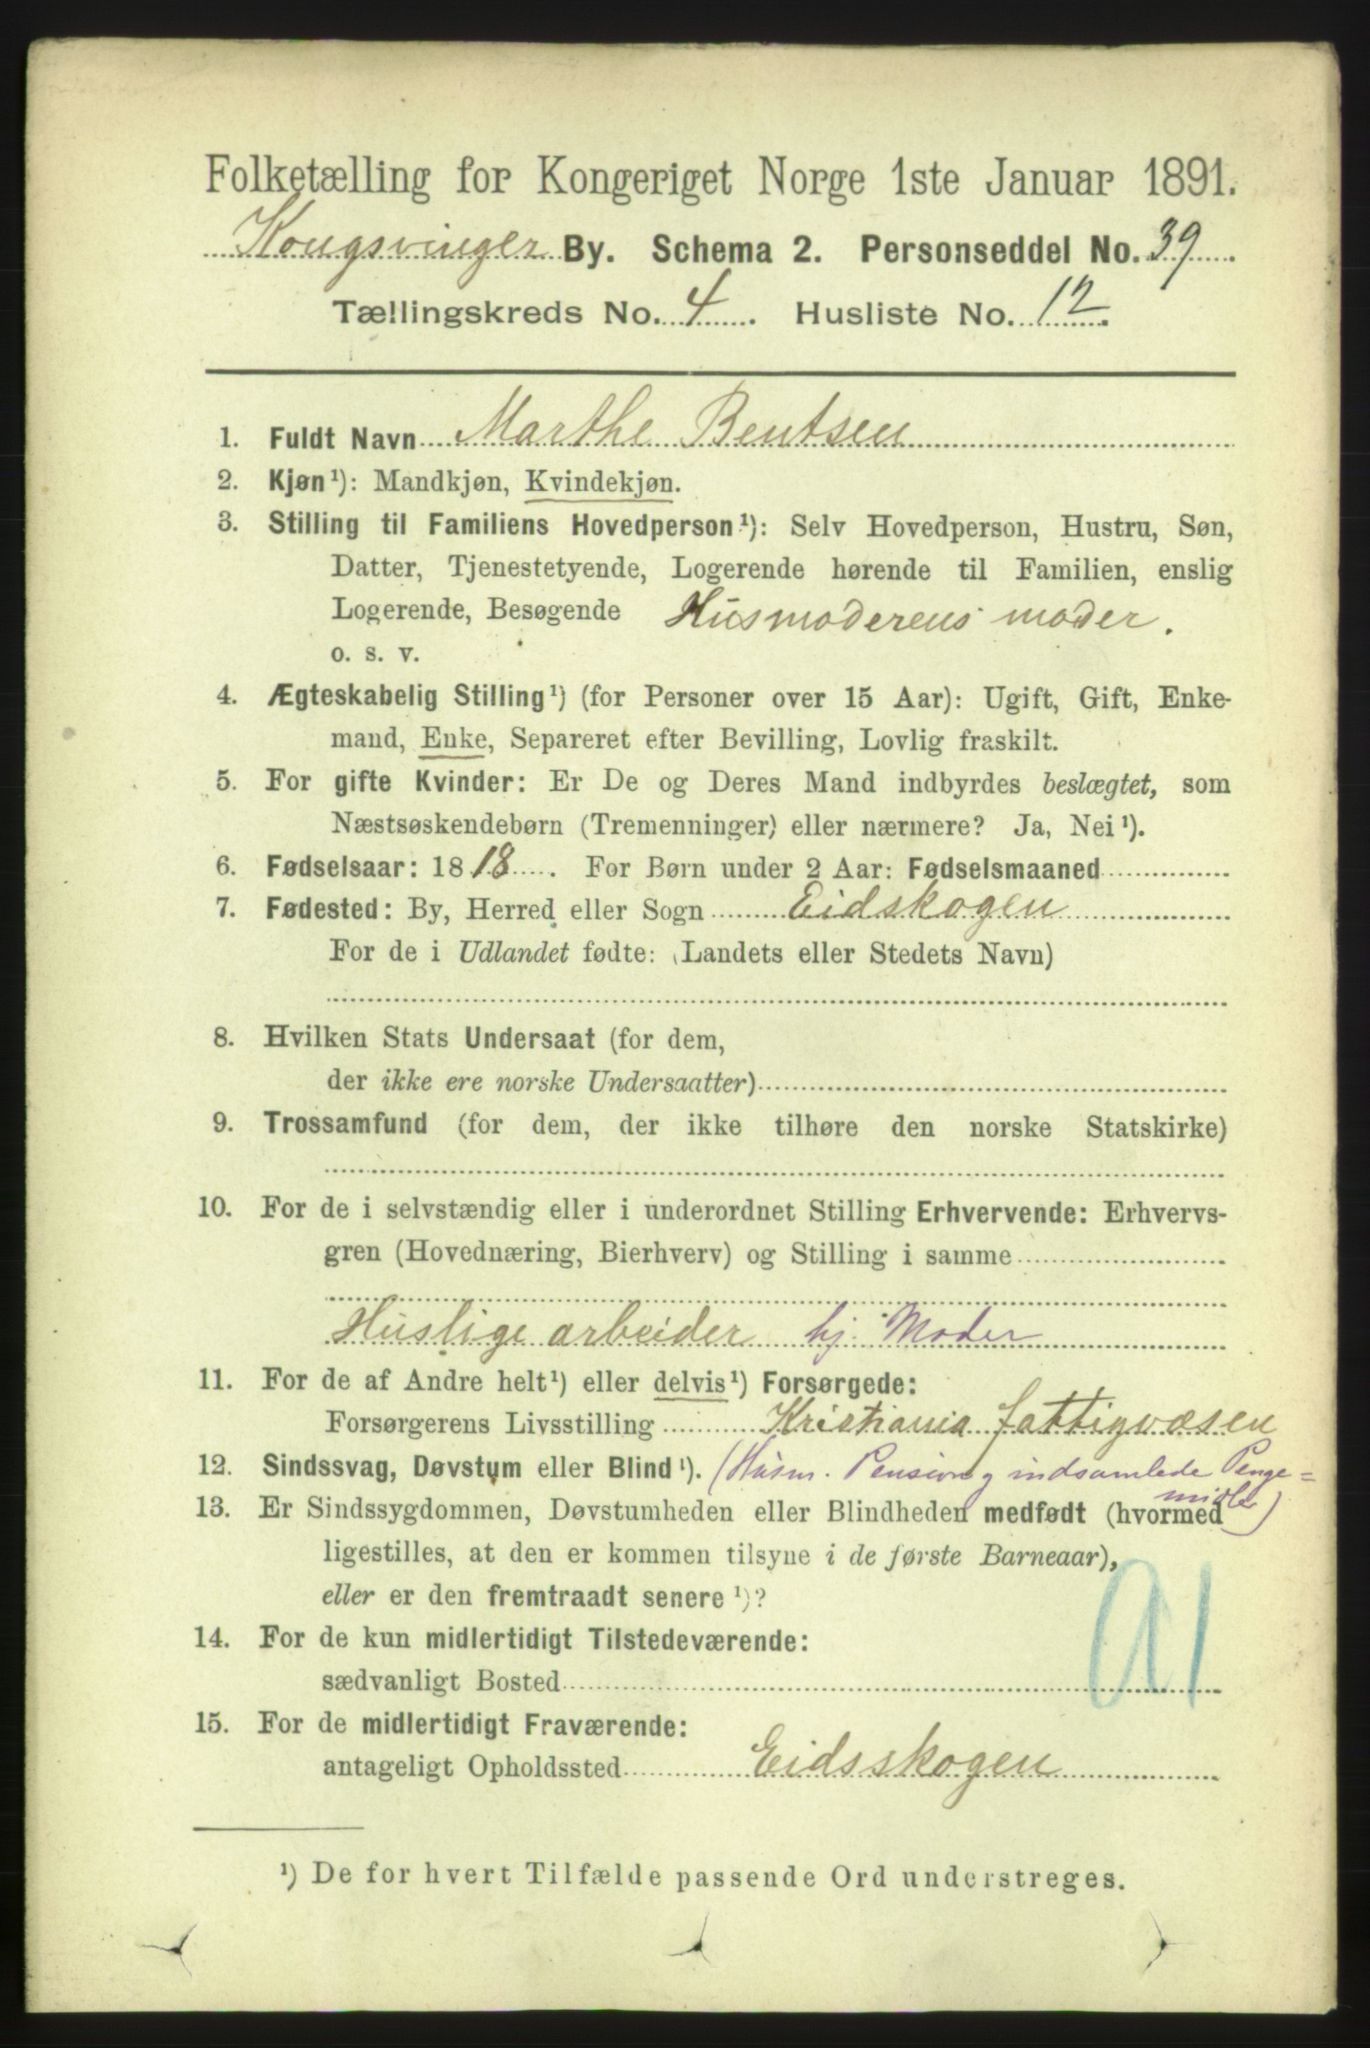 Folketælling for Kongeriget Norge 1ste Januar 1891.
Kongsvinger By. Schema 2. Personseddel No. 39
Tællingskreds No. 4. Husliste No. 12.
1. Fuldt Navn Marthe Bentsen
2. Kjøn¹): Mandkjøn, Kvindekjøn.
3. Stilling til Familiens Hovedperson¹): Selv Hovedperson, Hustru, Søn,
Datter, Tjenestetyende, Logerende hørende til Familien, enslig
Logerende, Besøgende Husmoderens moder.
o. s. v.
4. Ægteskabelig Stilling¹) (for Personer over 15 Aar): Ugift, Gift, Enke-
mand, Enke, Separeret efter Bevilling, Lovlig fraskilt.
5. For gifte Kvinder: Er De og Deres Mand indbyrdes beslægtet, som
Næstsøskendebørn (Tremenninger) eller nærmere? Ja, Nei¹).
6. Fødselsaar: 1818. For Børn under 2 Aar: Fødselsmaaned
7. Fødested: By, Herred eller Sogn Eidskogen
For de i Udlandet fødte: (Landets eller Stedets Navn)
8. Hvilken Stats Undersaat (for dem,
der ikke ere norske Undersaatter)
9. Trossamfund (for dem, der ikke tilhøre den norske Statskirke)
10. For de i selvstændig eller i underordnet Stilling Erhvervende: Erhvervs-
gren (Hovednæring, Bierhverv) og Stilling i samme
Huslige arbeider hj. Moder
11. For de af Andre helt¹) eller delvis¹) Forsørgede:
Forsørgerens Livsstilling Kristiania fattigvæsen
12. Sindssvag, Døvstum eller Blind¹). (Husm. Pension og indsamlede Penge=
midler)
13. Er Sindssygdommen, Døvstumheden eller Blindheden medfødt (hvormed
ligestilles, at den er kommen tilsyne i de første Barneaar),
eller er den fremtraadt senere¹)?
14. For de kun midlertidigt Tilstedeværende:
sædvanligt Bosted
15. For de midlertidigt Fraværende:
antageligt Opholdssted Eidsskogen
¹) De for hvert Tilfælde passende Ord understreges.